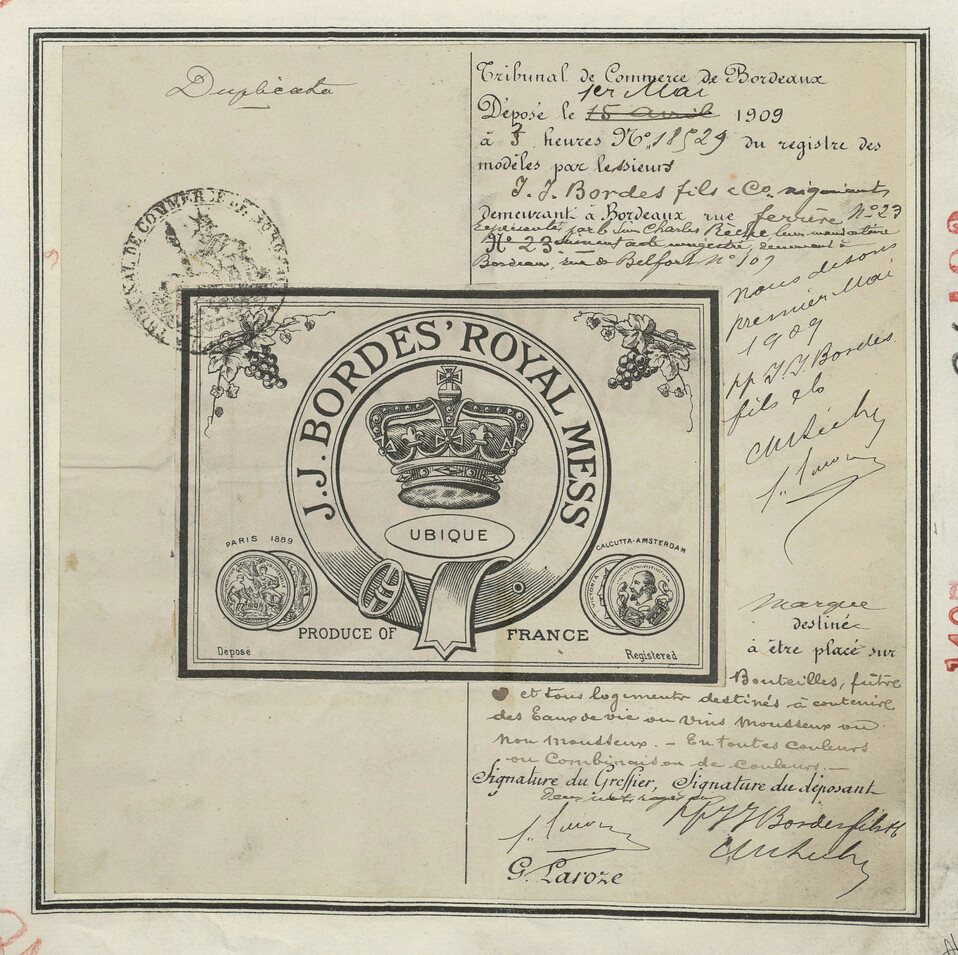 Duplicata
Tribunal de Commerce de Bordeaux
1er Mai
Déposé le 15 avril 1909
à 3 heures No. 18529 du registre des
modèles par les sieurs
J. J. Bordes fils & Co. négociants
demeurant à Bordeaux rue ferrère No 23
représentés par le Sieur Charles leur mandataire
No 23 demeurant à
Bordeaux, rue de Belfort No 107
nous disons
premier Mai
1909
pp J. J. Bordes
fils & Co
TRIBUNAL DE COMMERCE DE BORDEAUX
J. J. BORDES' ROYAL MESS
UBIQUE
PARIS 1889
CALCUTTA-AMSTERDAM
PRODUCE OF FRANCE
Déposé
Registered
Marque
destinée
à être placé sur
Bouteilles, fûts
et tous logements destinés à contenir
des Eaux de vie ou vins mousseux ou
non mousseux. — En toutes couleurs
ou Combinaison de couleurs. —
Signature du Greffier, Signature du déposant
pp J J Bordes fils & Co
G. Laroze